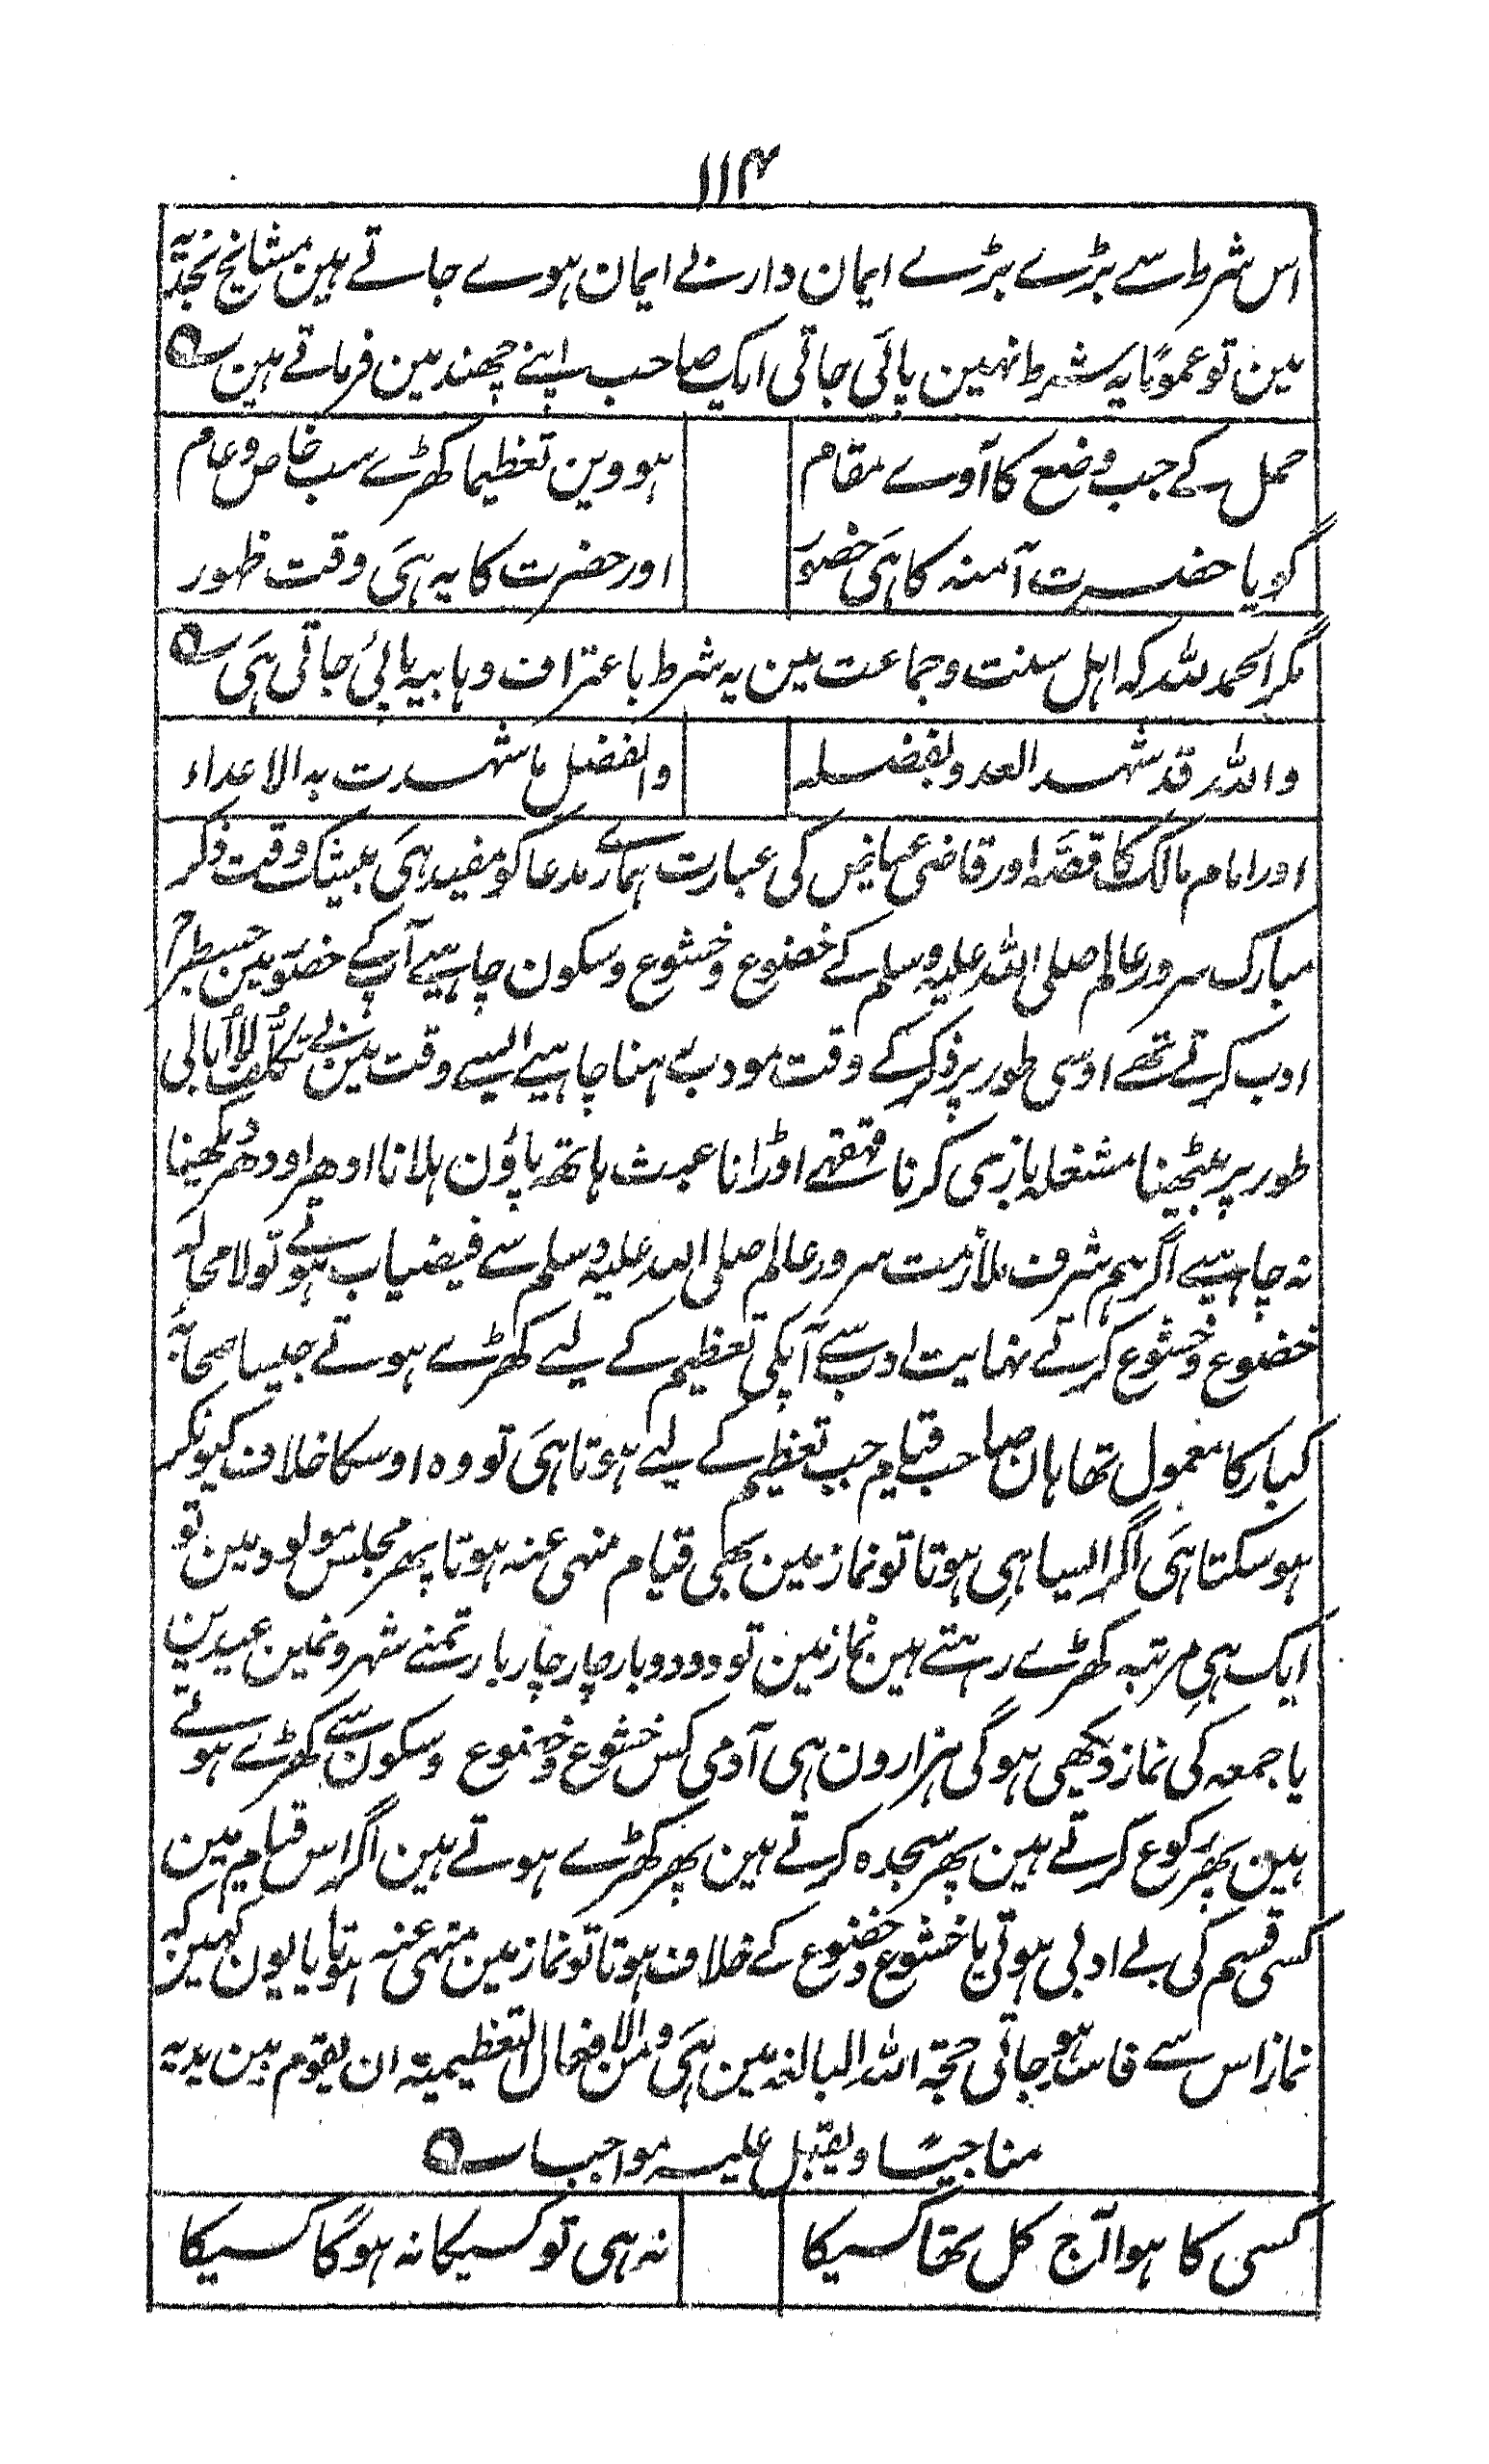 ۱۱۴
اس شرط سے بڑے بڑے ایمان دار بے ایمان ہوے جاتے ہین مشایخ نجدیہ
مین تو عموماً یہ شرط نہین پائی جاتی ایک صاحب اپنے چھند مین فرماتے ہین
حمل کے جب وضع کا آوے مقام ہووین تعظیما کھڑے سب خاص و عام
گویا حضرت آمنہ کا ہی حضور اور حضرت کا یہ ہی وقت ظہور
مگر الحمد للہ کہ اہل سنت و جماعت مین یہ شرط باعتراف وہابیہ پائی جاتی ہی
واللہ قد شہد العدو بفضلہ والفضل ما شہدت بہ الاعداء
اور امام مالک کا قصہ اور قاضی عیاض کی عبارت ہمارے مدعا کو مفید ہی بیشک وقت ذکر
مبارک سرور عالم صلی اللہ علیہ وسلم کے خضوع و خشوع و سکون چاہیے آپکے حضور مین جسطرح
ادب کرتے تھے اوسی طور پر ذکر کے وقت مودب رہنا چاہیے ایسے وقت مین بے تکلف لا اُبالی
طور پر بیٹھنا مشغلہ بازی کرنا قہقہے اوڑانا عبث ہاتھ پاؤن ہلانا ادھر اودھر دیکھنا
نہ چاہیے اگر ہم شرف ملازمت سرور عالم صلی اللہ علیہ وسلم سے فیضیاب ہوتے تو لامحالہ
خضوع و خشوع کرتے نہایت ادب سے آپکی تعظیم کے لیے کھڑے ہوتے جیسا صحابۂ
کبار کا معمول تھا ہان صاحب قیام جب تعظیم کے لیے ہوتا ہی تو وہ اوسکا خلاف کیونکر
ہو سکتا ہی اگر ایسا ہی ہوتا تو نماز مین بھی قیام منہی عنہ ہوتا پھر مجلس مولود مین تو
ایک ہی مرتبہ کھڑے رہتے ہین نماز مین تو دو دو بار چار چار بار تمنے شہرونمین عیدین
یا جمعہ کی نماز دیکھی ہوگی ہزارون ہی آدمی کس خشوع و خضوع و سکون سے کھڑے ہوتے
ہین پھر رکوع کرتے ہین پھر سجدہ کرتے ہین پھر کھڑے ہوتے ہین اگر اس قیام مین
کسی قسم کی بے ادبی ہوتی یا خشوع و خضوع کے خلاف ہوتا تو نماز مین منہی عنہ ہوتا یا یون کہین کہ
نماز اس سے فاسد ہو جاتی حجۃ اللہ البالغہ مین ہی ومن الافعال التعظیمیۃ ان یقوم بین یدیہ
مناجیًا ویقبل علیہ مواجہا
کسی کا ہوا آج کل تھا کسیکا نہ ہی تو کسیکا نہ ہوگا کسیکا